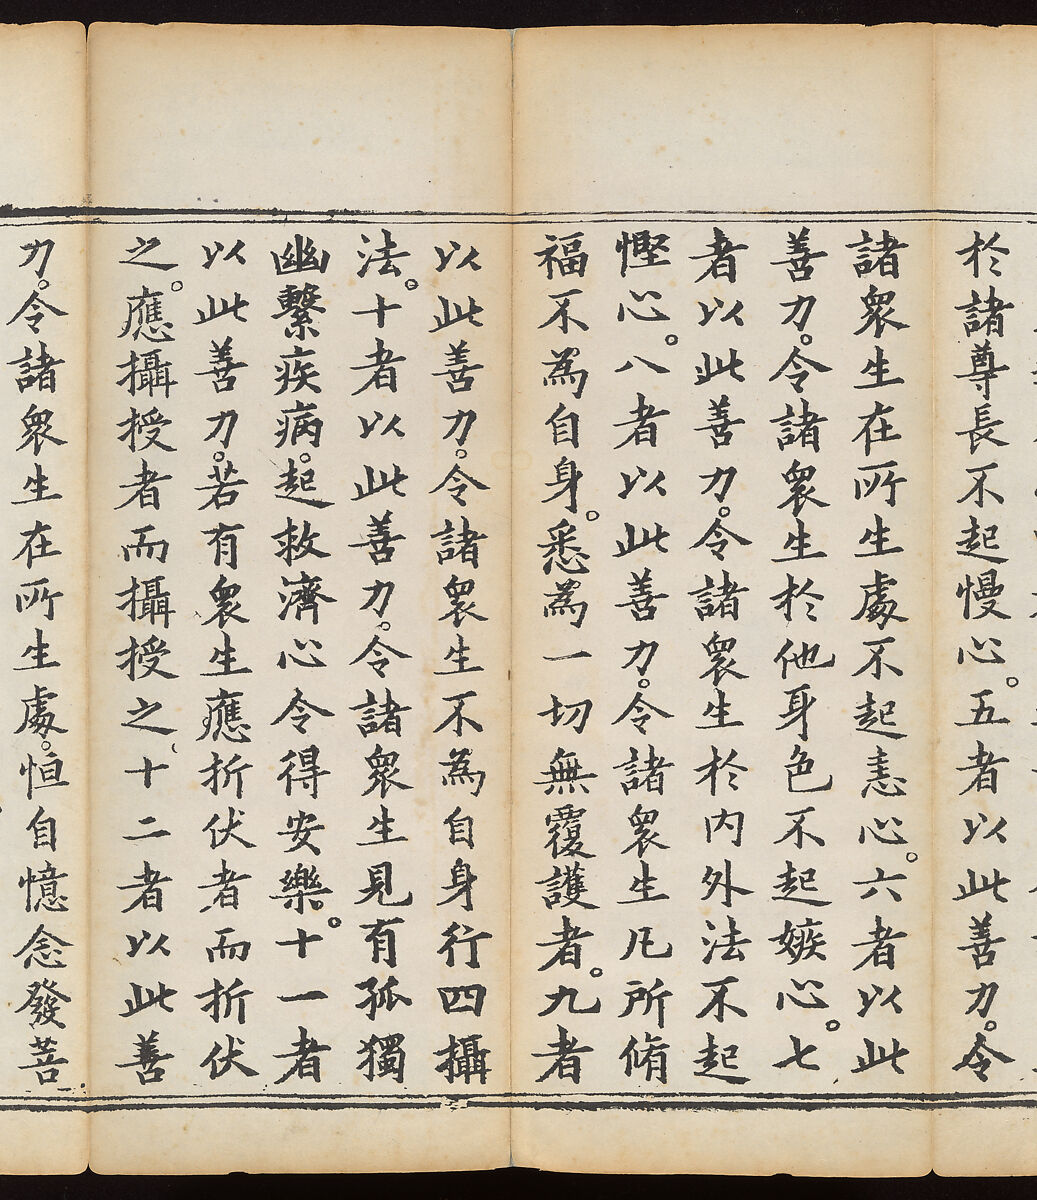 於諸尊長不起慢心。五者以此善力。令
諸衆生在所生處不起恚心。六者以此
善力。令諸衆生於他身色不起嫉心。七
者以此善力。令諸衆生於内外法不起
慳心。八者以此善力。令諸衆生凡所脩
福不為自身。悉為一切無覆護者。九者
以此善力。令諸衆生不為自身行四攝
法。十者以此善力。令諸衆生見有孤獨
幽繫疾病。起救濟心令得安樂。十一者
以此善力。若有衆生應折伏者而折伏
之。應攝授者而攝授之、十二者以此善
力。令諸衆生在所生處。恒自憶念發菩